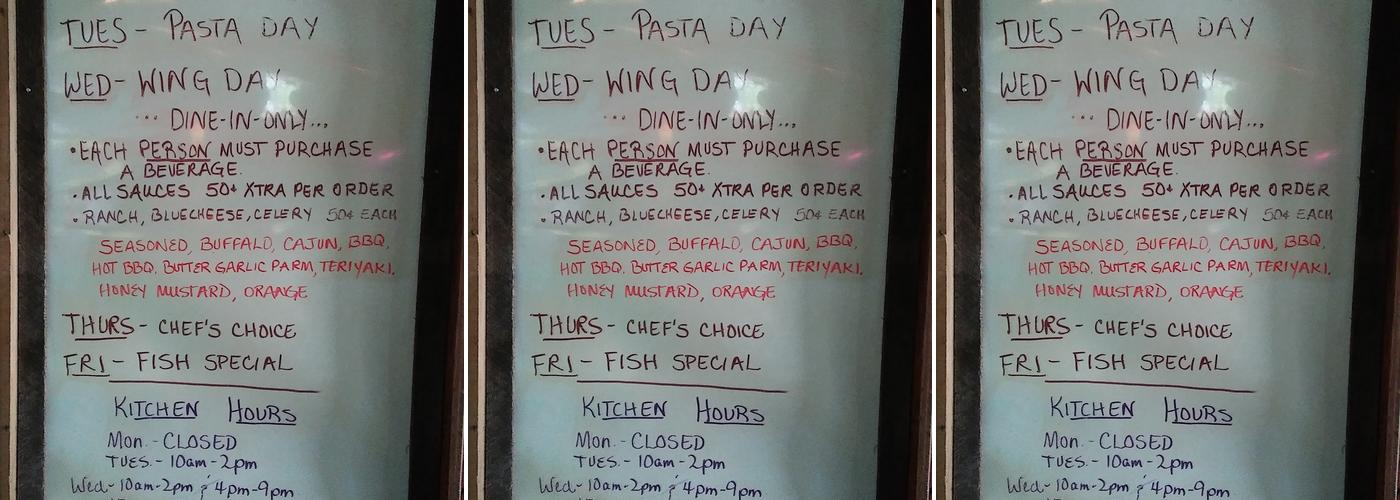 TUES - PASTA DAY
WED - WING DAY
... DINE-IN-ONLY...
• EACH PERSON MUST PURCHASE
A BEVERAGE.
• ALL SAUCES 50¢ XTRA PER ORDER
• RANCH, BLUECHEESE, CELERY 50¢ EACH
SEASONED, BUFFALO, CAJUN, BBQ,
HOT BBQ. BUTTER GARLIC PARM, TERIYAKI.
HONEY MUSTARD, ORANGE
THURS - CHEF'S CHOICE
FRI - FISH SPECIAL
KITCHEN HOURS
Mon. - CLOSED
TUES. - 10am-2pm
Wed - 10am-2pm & 4pm-9pm
TUES - PASTA DAY
WED - WING DAY
... DINE-IN-ONLY...
• EACH PERSON MUST PURCHASE
A BEVERAGE.
• ALL SAUCES 50¢ XTRA PER ORDER
• RANCH, BLUECHEESE, CELERY 50¢ EACH
SEASONED, BUFFALO, CAJUN, BBQ,
HOT BBQ. BUTTER GARLIC PARM, TERIYAKI.
HONEY MUSTARD, ORANGE
THURS - CHEF'S CHOICE
FRI - FISH SPECIAL
KITCHEN HOURS
Mon. - CLOSED
TUES. - 10am-2pm
Wed - 10am-2pm & 4pm-9pm
TUES - PASTA DAY
WED - WING DAY
... DINE-IN-ONLY...
• EACH PERSON MUST PURCHASE
A BEVERAGE.
• ALL SAUCES 50¢ XTRA PER ORDER
• RANCH, BLUECHEESE, CELERY 50¢ EACH
SEASONED, BUFFALO, CAJUN, BBQ,
HOT BBQ. BUTTER GARLIC PARM, TERIYAKI.
HONEY MUSTARD, ORANGE
THURS - CHEF'S CHOICE
FRI - FISH SPECIAL
KITCHEN HOURS
Mon. - CLOSED
TUES. - 10am-2pm
Wed - 10am-2pm & 4pm-9pm